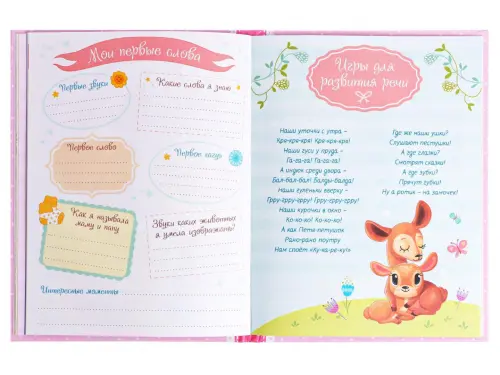 Мои первые слова
Первые звуки
Какие слова я знаю
Первое слово
Первые
Как я называла
маму и папу
Звуки каких животных
я умела изображать?
Интересные моменты
Игры для
развития речи
Наши уточки с утра -
Кря-кря-кря! Кря-кря-кря!
Наши гуси у пруда -
Га-га-га! Га-га-га!
А индюк среди двора -
Бал-бал-бал! Балды-балда!
Наши гуленьки вверху -
Грру-грру-грру! Грру-грру-грру!
Наши курочки в окно -
Ко-ко-ко! Ко-ко-ко!
А как Петя-петушок
Рано-рано поутру
Нам споёт «Ку-ка-ре-ку!»
Где же наши ушки?
Слушают пестушки!
А где глазки?
Смотрят сказки!
А где зубки?
Прячут губки!
Ну а ротик - на замочек!